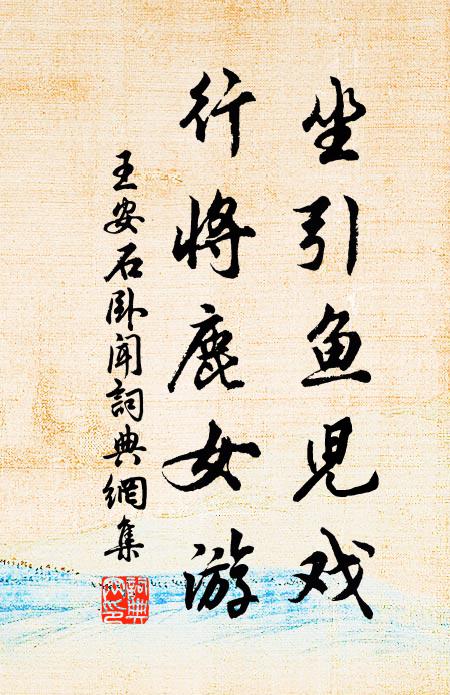 坐引鱼児戏
行将鹿女游
王安石卧闻詞典網集